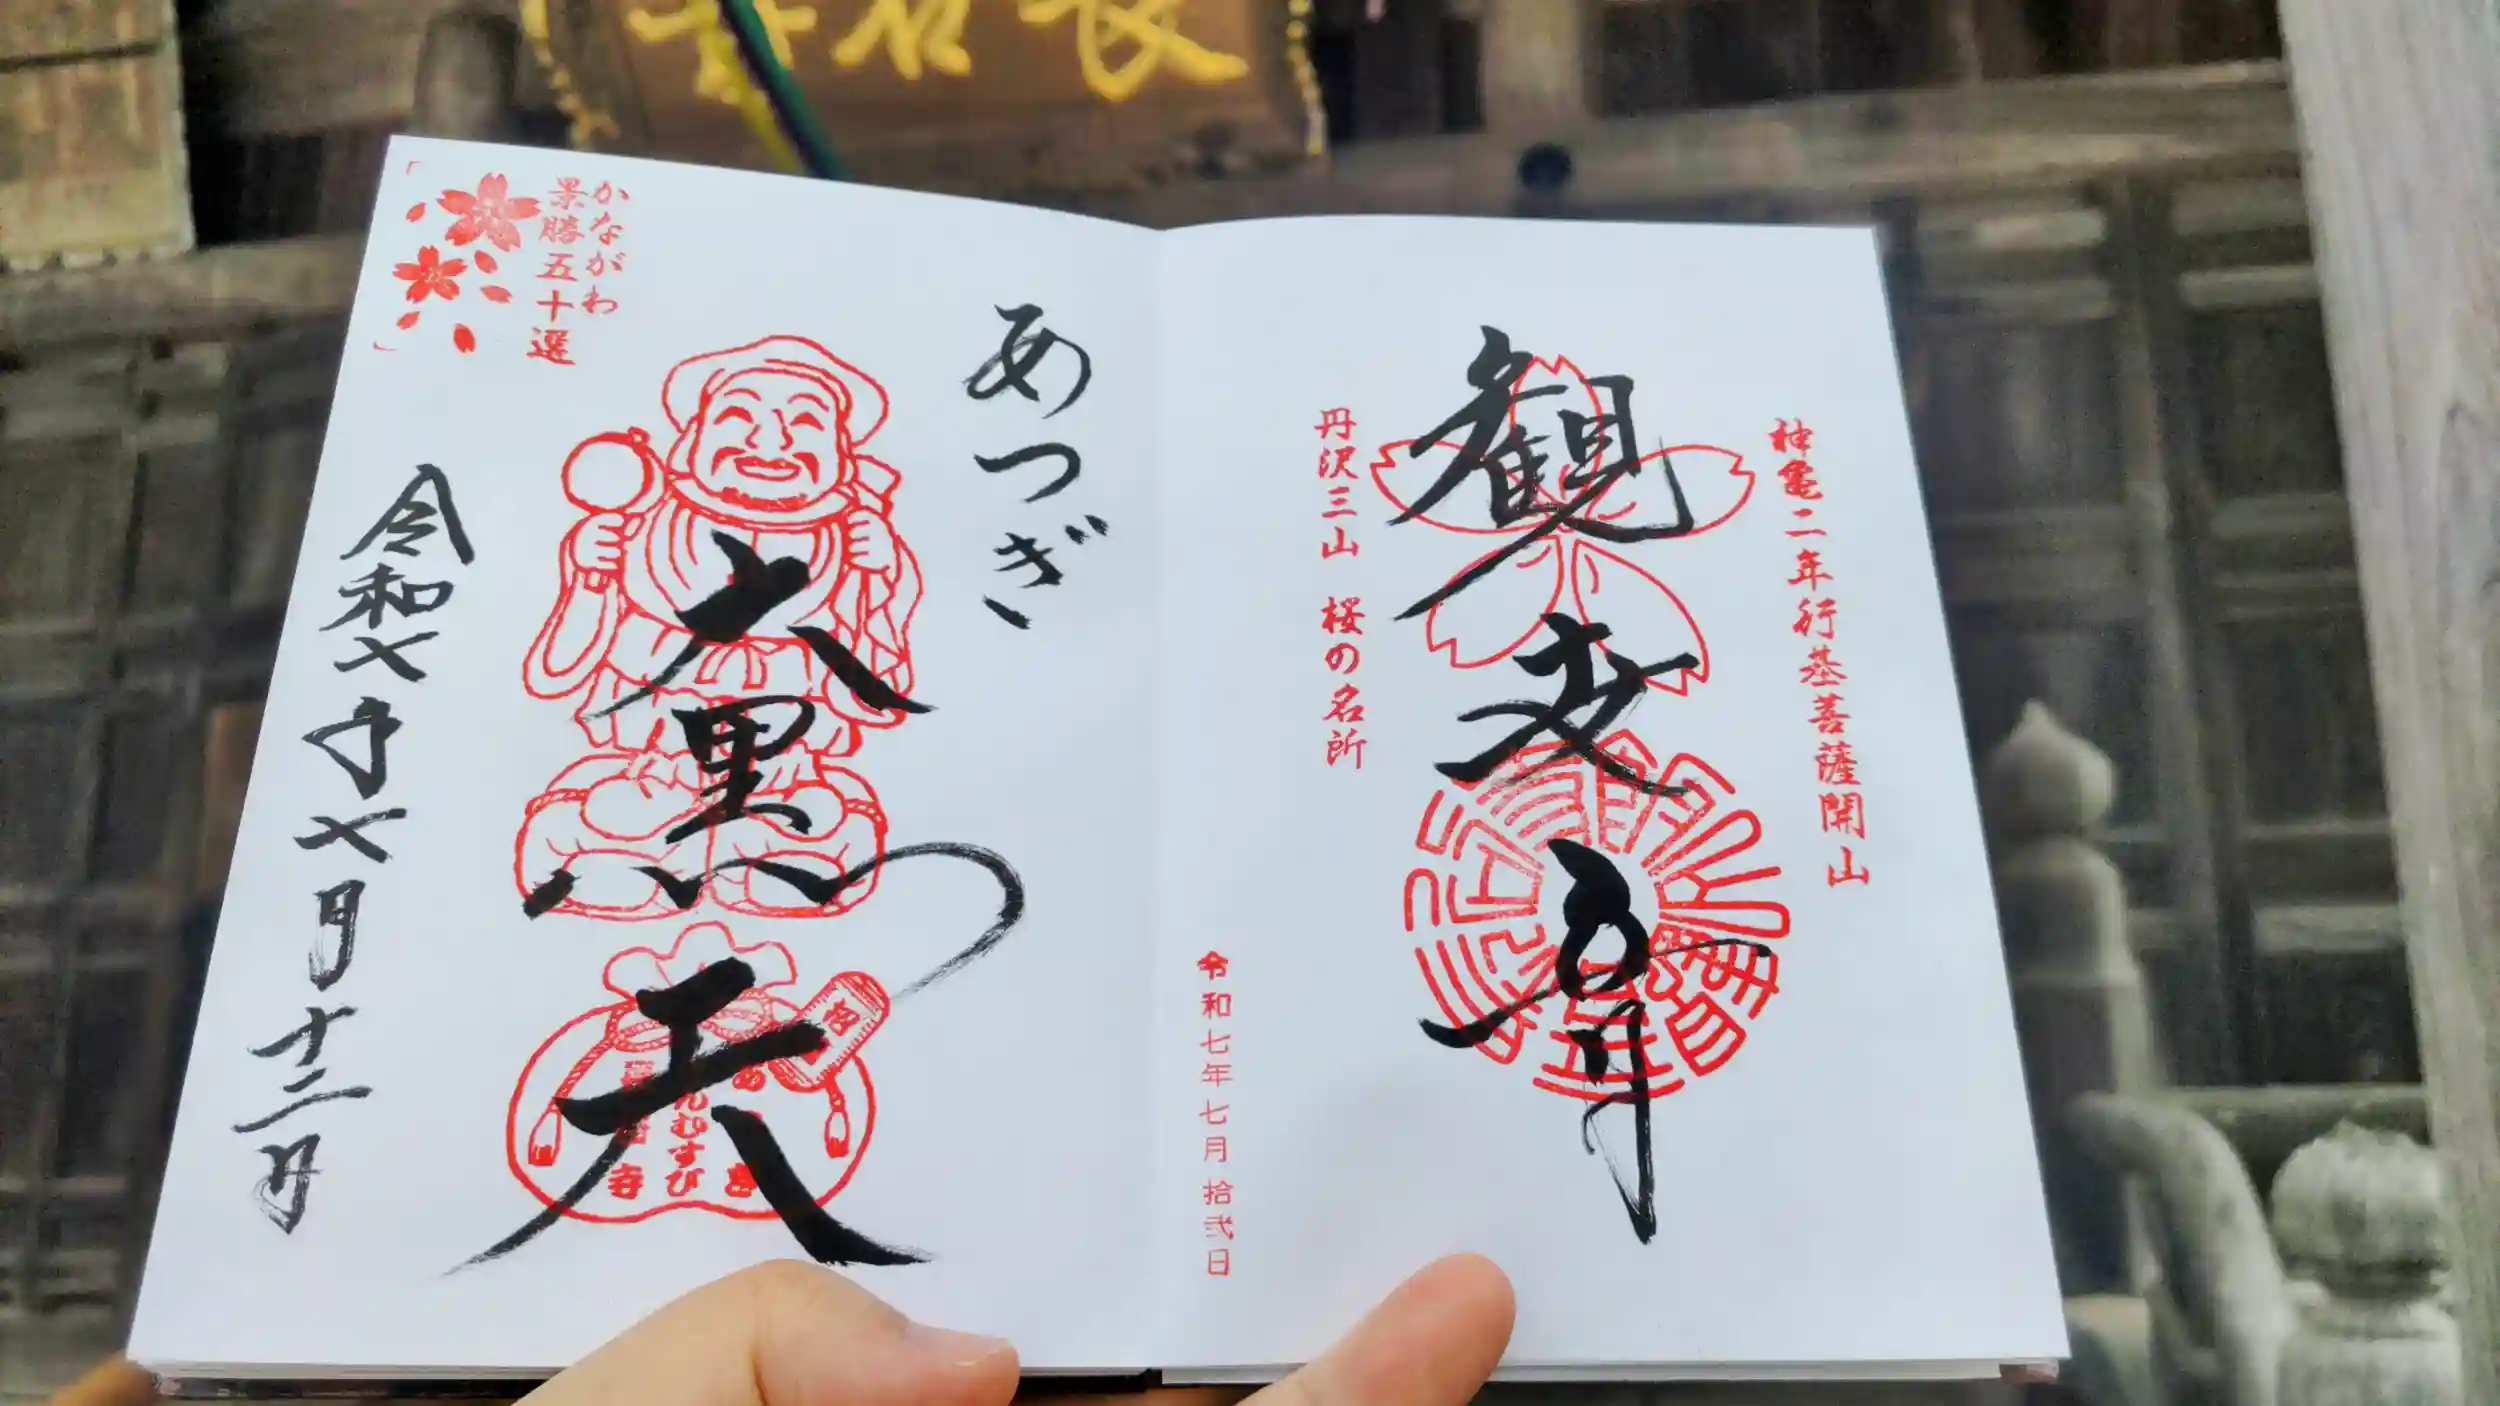 神亀二年行基菩薩開山
観世音
丹沢三山 桜の名所
令和七年七月拾弐日
あつぎ
大黒天
えんむすび
寺
かながわ
景勝五十選
令和七年七月十二日